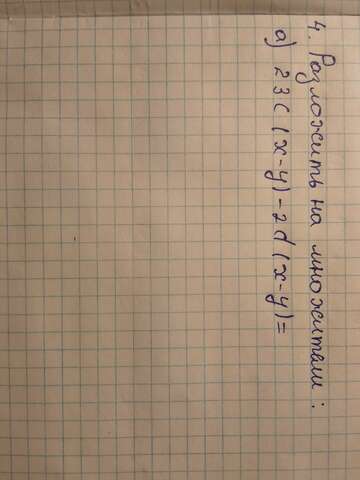 4. Разложить на множители:
а) 23c (x-y)-2d(x-y)=